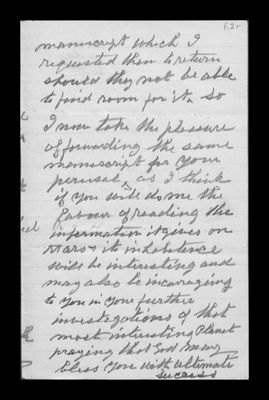 f.2r
manuscript which I
requested them to return
should they not be able
to find room for it. So
I now take the pleasure
of forwarding the same
manuscript for your
perusal, as I think
if you will do me the
favour of reading the
information it gives on
Mars & its inhabitence
will be interesting and
may also be incouraging
to you in your further
investogations of that
most interesting Planet
praying that God may
bless you with ultimate
success